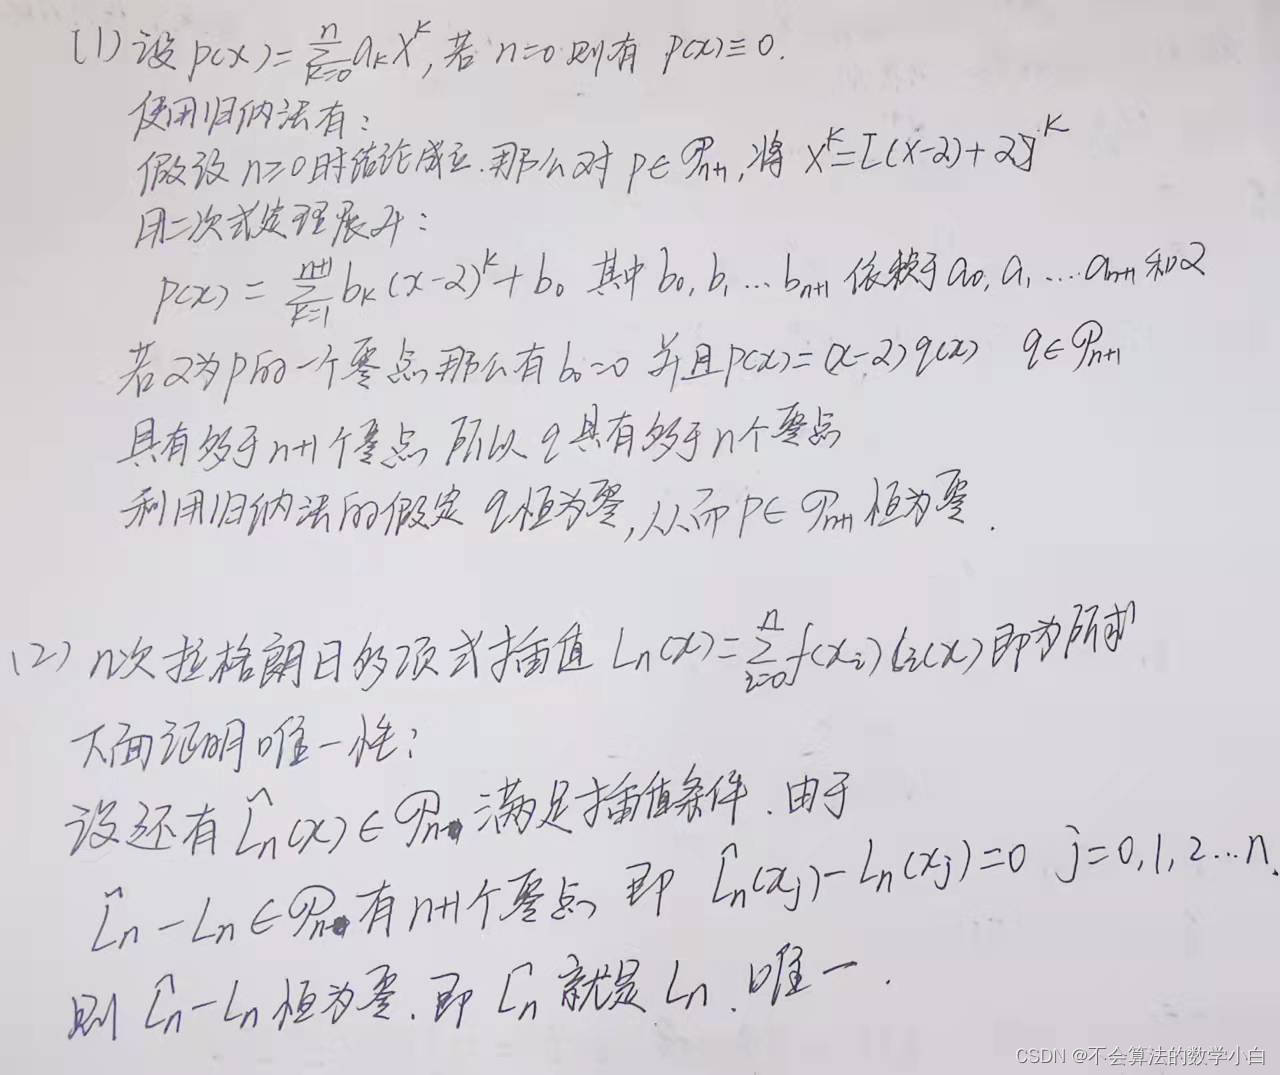 (1) 设 p(x)=∑_{k=0}^{n} a_k x^k, 若 n=0 则有 p(x)≡0.
使用归纳法有:
假设 n≥0时结论成立.那么对 p∈𝒫_{n+1},将 x^k=[(x-2)+2]^k
用二次式定理展开:
p(x) = ∑_{k=1}^{n+1} b_k (x-2)^k + b_0 其中 b_0, b_1 … b_{n+1} 依赖于 a_0, a_1 … a_{n+1} 和 2
若2为p的一个零点,那么有 b_0=0 并且p(x)=(x-2)q(x) q∈𝒫_{n+1}
具有多于 n+1个零点,所以 q 具有多于n个零点
利用归纳法的假定 q恒为零,从而p∈𝒫_{n+1}恒为零.
(2) n次拉格朗日多项式插值 L_n(x)=∑_{i=0}^{n} f(x_i) l_i(x) 即为所求
下面证明唯一性:
设还有 L̂_n(x)∈𝒫_n 满足插值条件.由于
L̂_n-L_n∈𝒫_n 有n+1个零点,即 L̂_n(x_j)-L_n(x_j)=0 j=0,1,2…n.
则 L̂_n-L_n 恒为零.即 L̂_n 就是 L_n.唯一.
CSDN @不会算法的数学小白